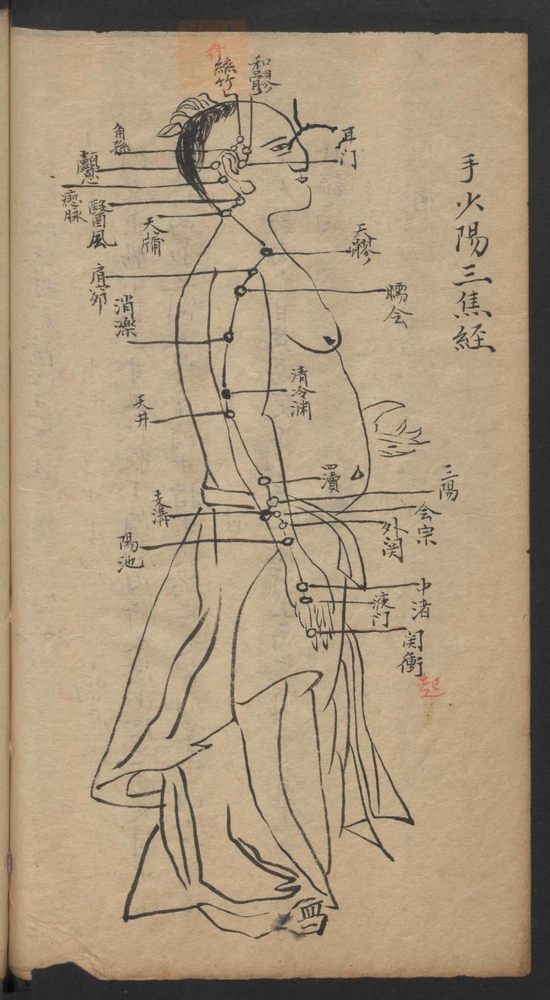 手少陽三焦経
和髎
絲竹
耳门
角孫
顱息
瘈脉
翳風
天牖
天髎
肩髎
臑会
消濼
清冷渊
天井
四瀆
三陽
会宗
支溝
外関
陽池
中渚
液门
関衝
起